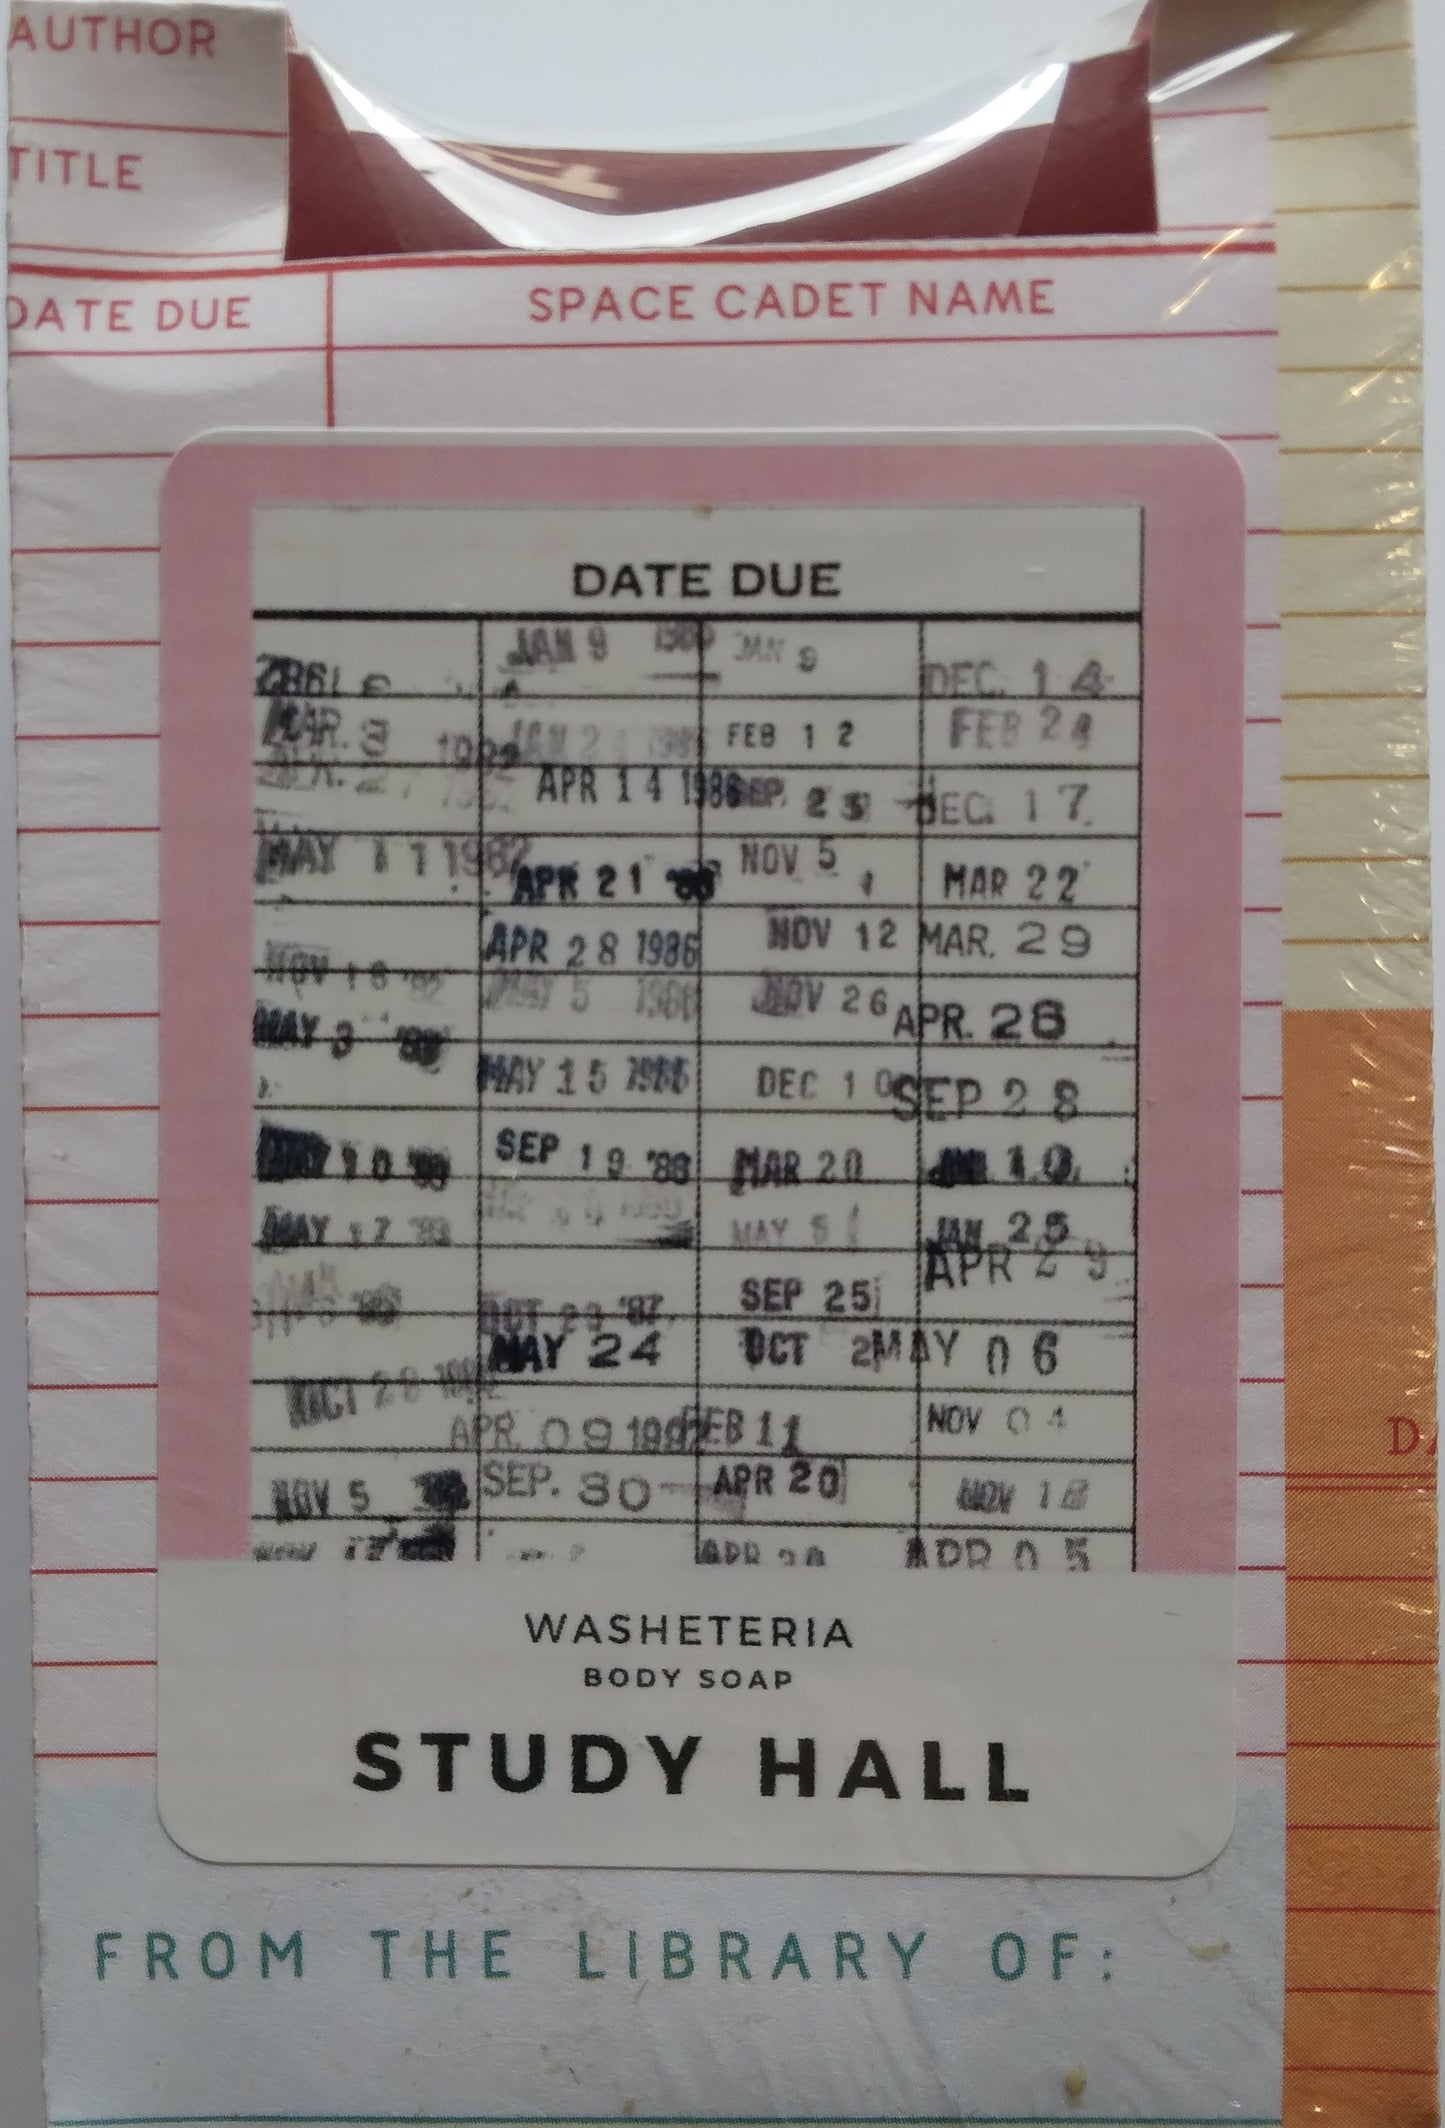 AUTHOR
TITLE
DATE DUE
SPACE CADET NAME
DATE DUE
JAN 9
JAN 9
DEC. 14
MAR. 3
FEB 12
FEB 24
APR 14 1986
SEP. 23
DEC. 17
MAY 11 1982
APR 21
NOV 5
MAR 22
APR 28 1986
NOV 12
MAR. 29
NOV 18
MAY 5 1986
NOV 26
APR. 26
MAY 3
MAY 15 1986
DEC 10
SEP 28
10
SEP 19 '88
MAR 20
JAN 10
MAY 17
MAY 5
JAN 25
APR 29
OCT 23 '87
SEP 25
MAY 24
OCT 2
MAY 06
OCT 28
APR. 09
FEB 11
NOV 04
NOV 5
SEP. 30
APR 20
NOV 18
APR 05
WASHETERIA
BODY SOAP
STUDY HALL
FROM THE LIBRARY OF: